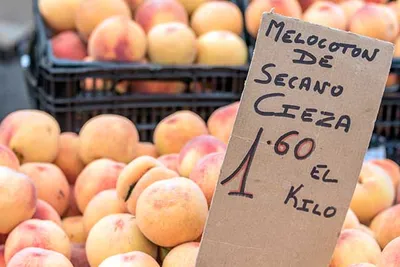 MELOCOTON
DE
SECANO
CIEZA
1.60 EL
KILO